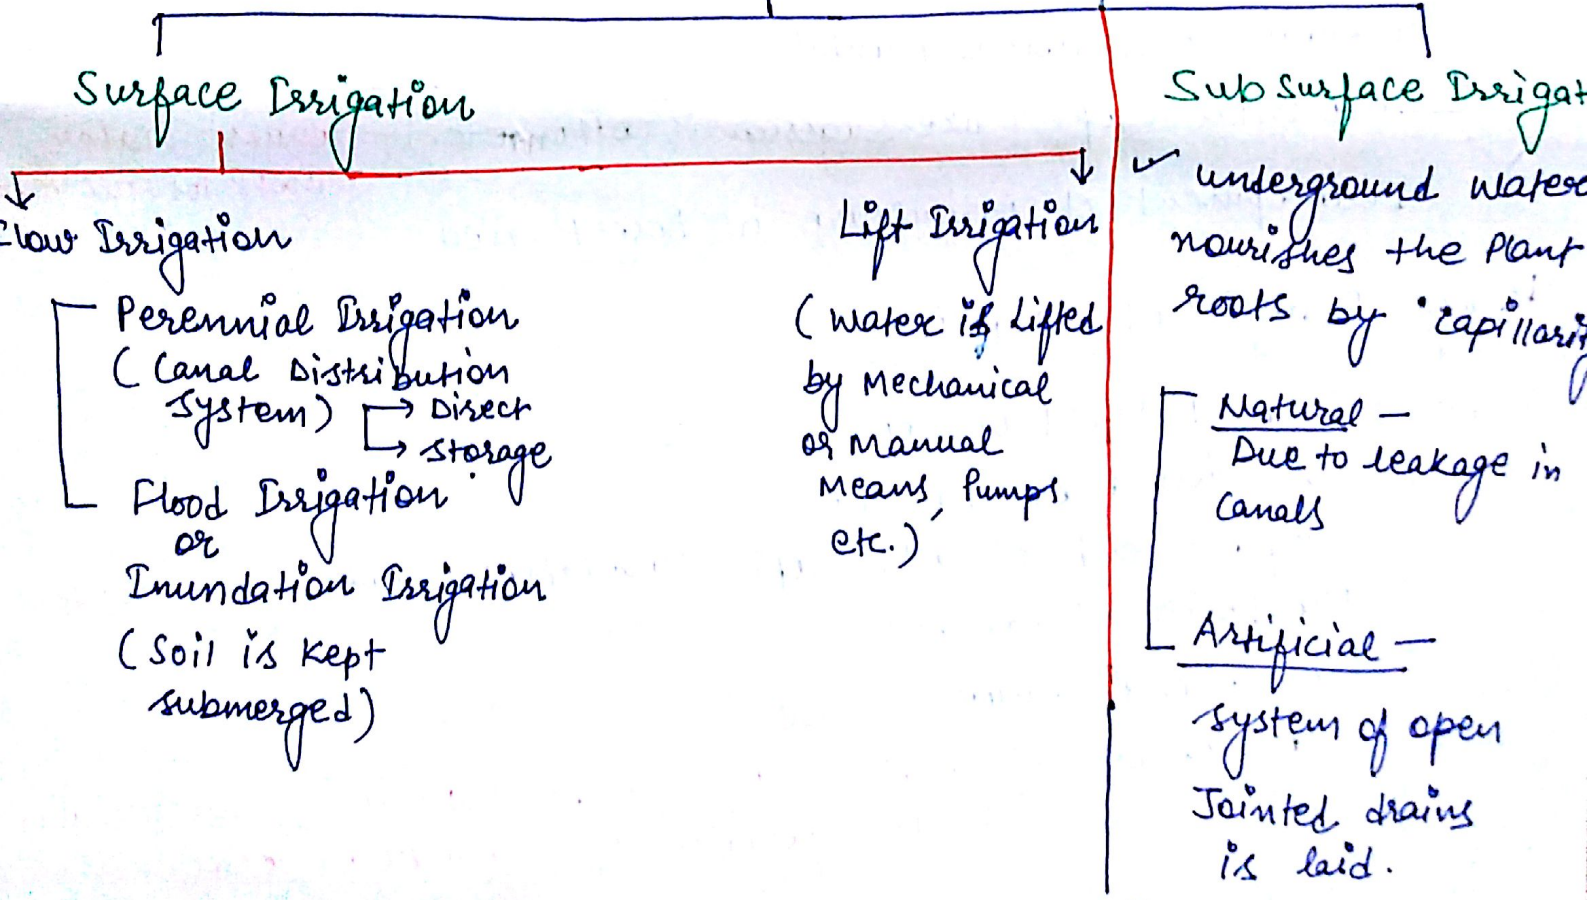 Surface Irrigation
Flow Irrigation
Perennial Irrigation
(Canal Distribution
System) → Direct
→ Storage
Flood Irrigation
or
Inundation Irrigation
(Soil is kept
submerged)
Lift Irrigation
(Water is Lifted
by Mechanical
or Manual
Means, Pumps
etc.)
Sub surface Irrigat
underground water
nourishes the Plant
roots by capillarity
Natural —
Due to leakage in
Canals
Artificial —
System of open
Jointed drains
is laid.